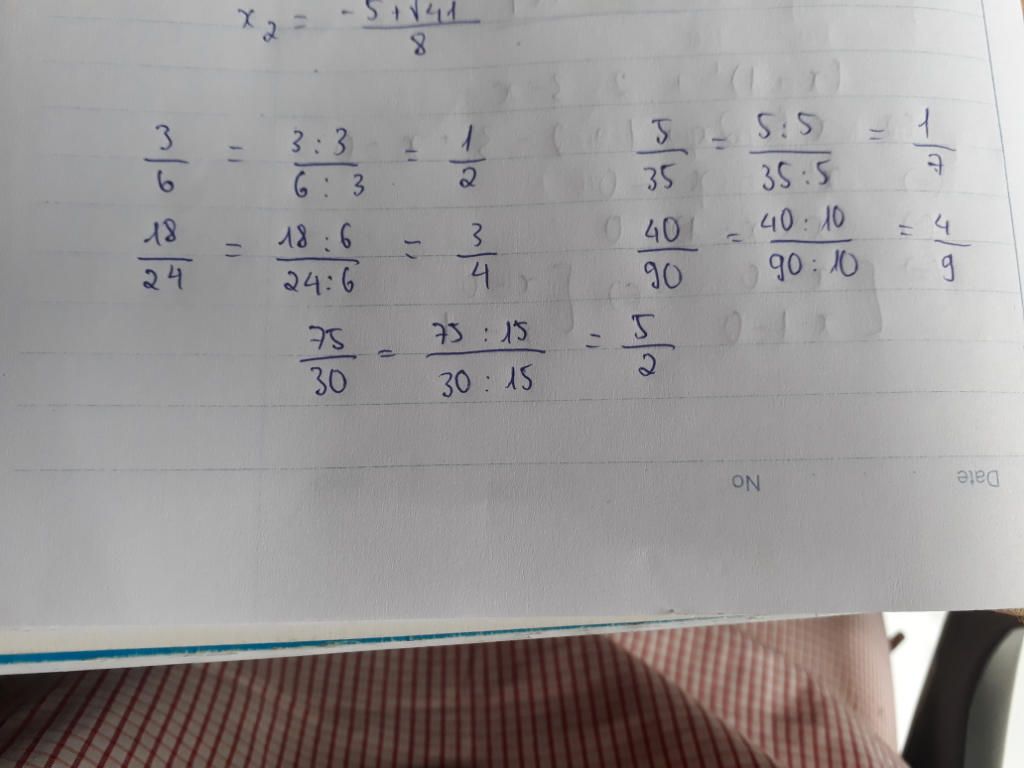 x₂ = (-5+√41)/8
3/6 = (3:3)/(6:3) = 1/2 5/35 = (5:5)/(35:5) = 1/7
18/24 = (18:6)/(24:6) = 3/4 40/90 = (40:10)/(90:10) = 4/9
75/30 = (75:15)/(30:15) = 5/2
No Date